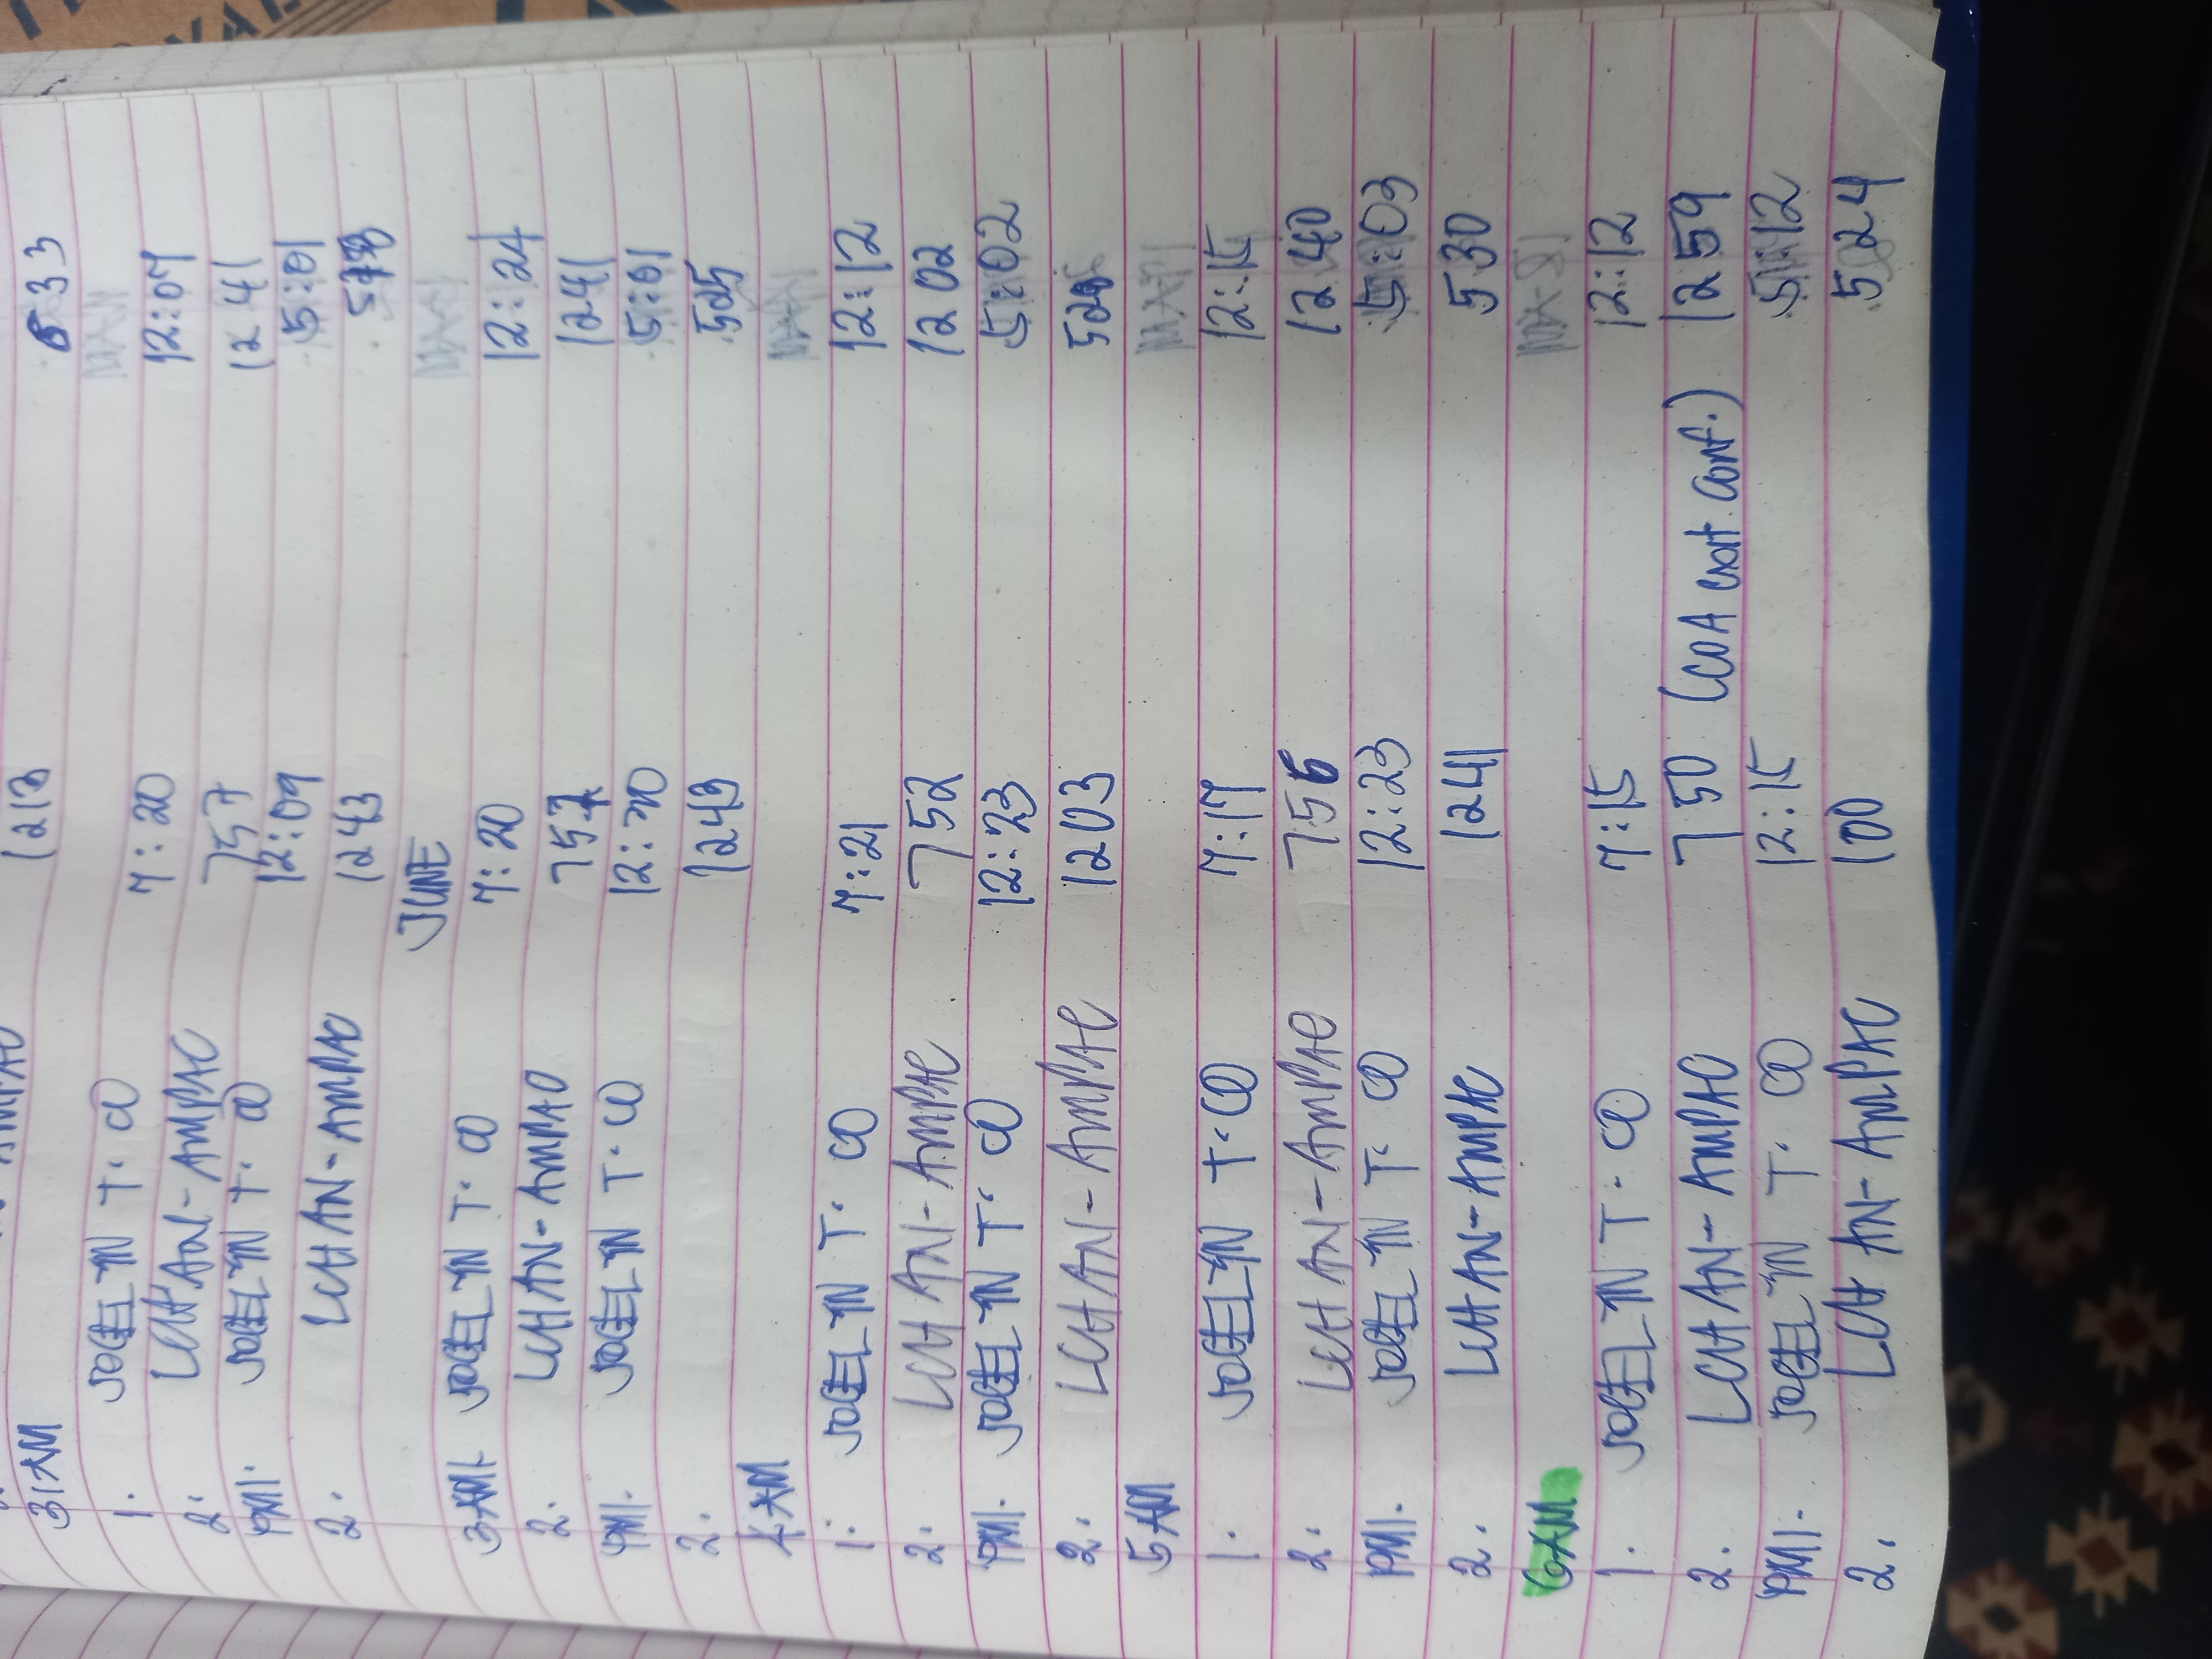 1213 533
31 AM
1. JOCELYN T. CO 7:20 12:07
2. LCH AN-AMPAC 757 1241
PM1. JOCELYN T. CO 12:09 5:01
2. LCH AN-AMPAC 1243
JUNE
3AM1. JOCELYN T. CO 7:20 12:24
2. LCH AN-AMPAO 757 1241
PM1. JOCELYN T. CO 12:30 5:01
2. 1243 525
4 AM
1. JOCELYN T. CO 7:21 12:12
2. LCH AN-AMPAC 752 1202
PM1. JOCELYN T. CO 12:23 5:02
2. LCH AN-AMPAC 1203 528
5 AM
1. JOCELYN T. CO 7:17 12:15
2. LCH AN-AMPAC 756 1240
PM1. JOCELYN T. CO 12:23 5:03
2. LCH AN-AMPAC 1241 530
6AM
1. JOCELYN T. CO 7:15 12:12
2. LCH AN-AMPAO 750 (COA exit conf.) 1259
PM1. JOCELYN T. CO 12:15 5:12
2. LCH AN-AMPAC 100 524